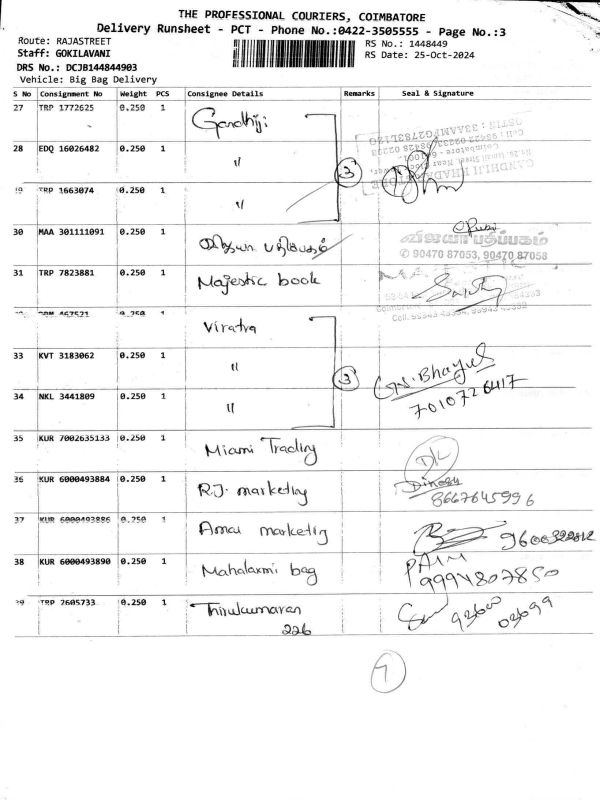 THE PROFESSIONAL COURIERS, COIMBATORE
Delivery Runsheet - PCT - Phone No.:0422-3505555 - Page No.:3
Route: RAJASTREET
RS No.: 1448449
Staff: GOKILAVANI
RS Date: 25-Oct-2024
DRS No.: DCJB144844903
Vehicle: Big Bag Delivery
S No Consignment No Weight PCS Consignee Details Remarks Seal & Signature
27 TRP 1772625 0.250 1 Gandhiji
28 EDQ 16026482 0.250 1 "
3
19 TRP 1663074 0.250 1 "
30 MAA 301111091 0.250 1 விஜயா பதிப்பகம்
விஜயா பதிப்பகம்
✆ 90470 87053, 90470 87058
31 TRP 7823881 0.250 1 Majestic book
467521 0.250 1 Viratra
33 KVT 3183062 0.250 1 "
3
34 NKL 3441809 0.250 1 "
7010726417
35 KUR 7002635133 0.250 1 Miami Trading
36 KUR 6000493884 0.250 1 R.J. marketing Dinesh
8667645996
37 KUR 6000493886 0.250 1 marketing
38 KUR 6000493890 0.250 1 Mahalaxmi bag
9994807850
39 TRP 2605733 0.250 1 Thirukumaran
226
7